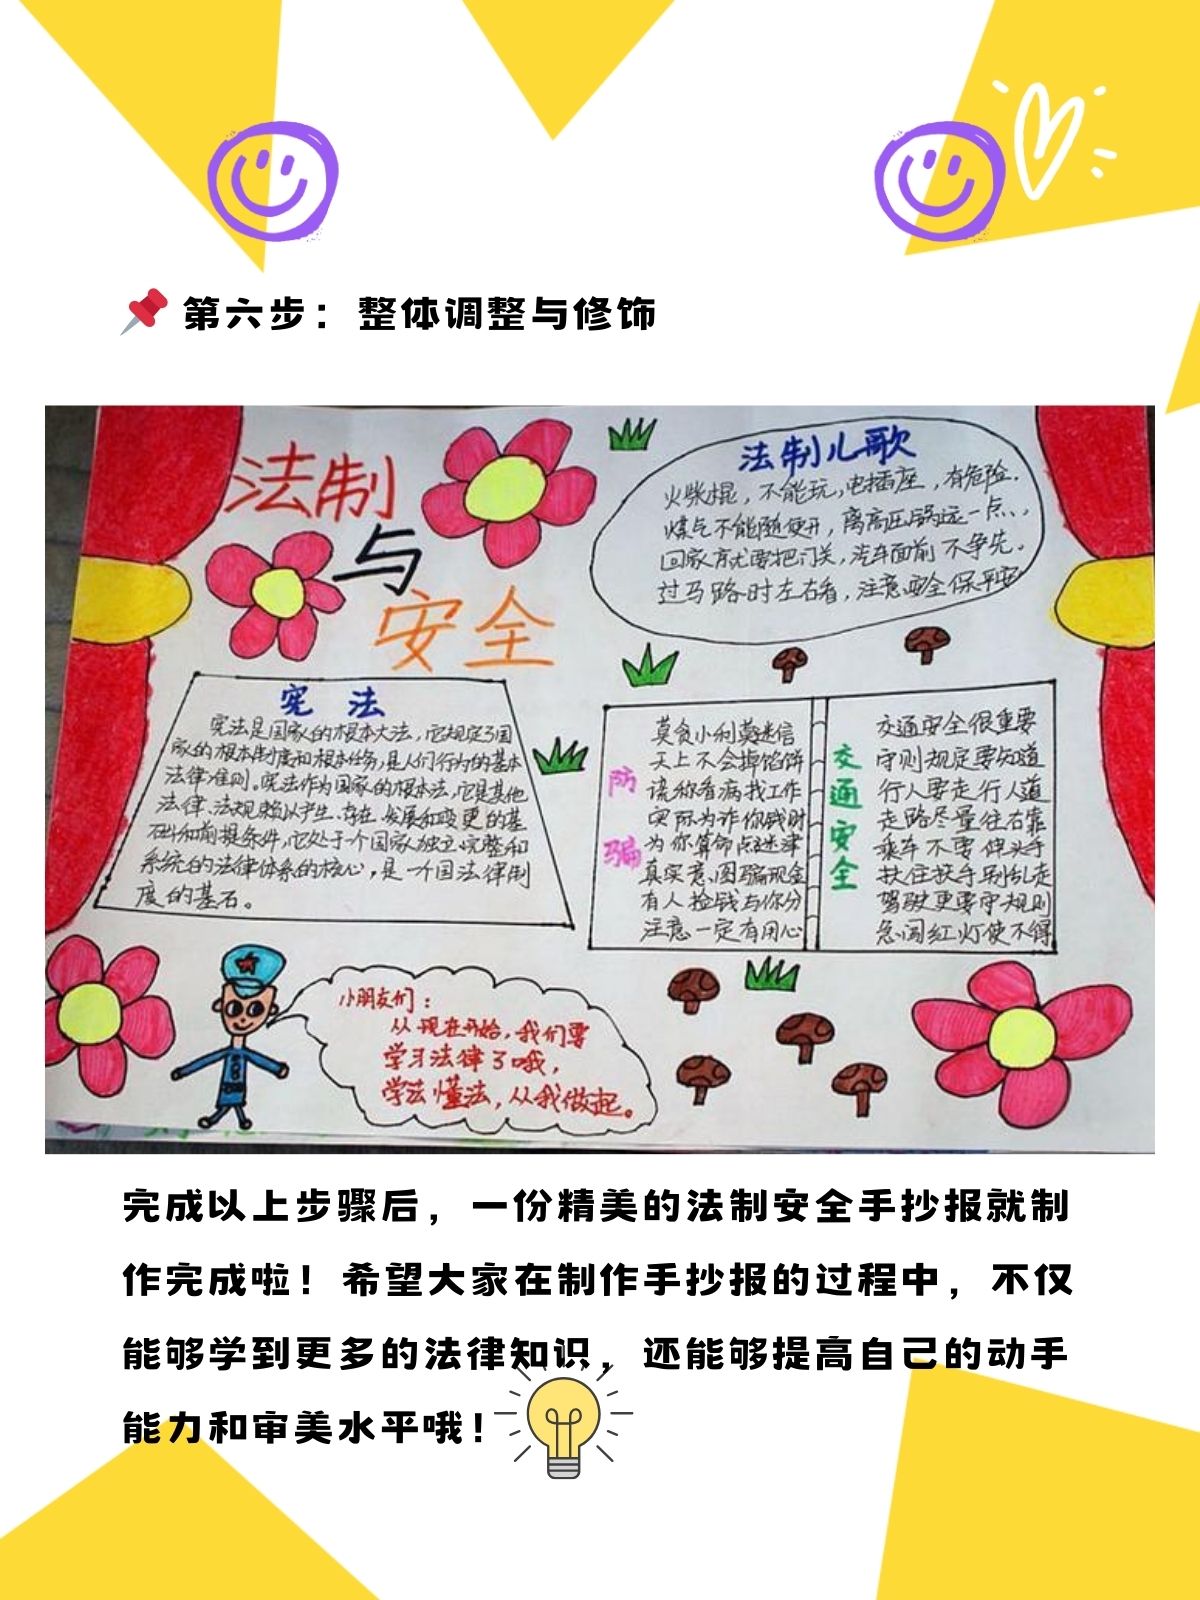 第六步：整体调整与修饰
法制
与
安全
法制儿歌
火柴棍，不能玩，电插座，有危险．
煤气不能随便开，离高压锅远一点、，
回家前就要把门关，汽车面前不争先。
过马路时左右看，注意安全保平安
宪法
宪法是国家的根本大法，它规定了国
家的根本制度和根本任务，是人们行为的基本
法律准则。宪法作为国家的根本法，它是其他
法律、法规赖以产生、存在、发展和变更的基
础和前提条件，它处于一个国家独立、完整和
系统的法律体系的核心，是一个国法律制
度的基石。
防骗
莫贪小利莫迷信
天上不会掉馅饼
谎称看病找工作
实际为诈你钱财
为你算命点迷津
真实意图骗现金
有人捡钱与你分
注意一定有用心
交通安全
交通安全很重要
守则规定要知道
行人要走人行道
走路尽量往右靠
乘车不要伸头手
扶住扶手别乱走
驾驶更要守规则
急闯红灯使不得
小朋友们：
从现在开始，我们要
学习法律了哦，
学法懂法，从我做起。
完成以上步骤后，一份精美的法制安全手抄报就制
作完成啦！希望大家在制作手抄报的过程中，不仅
能够学到更多的法律知识，还能够提高自己的动手
能力和审美水平哦！